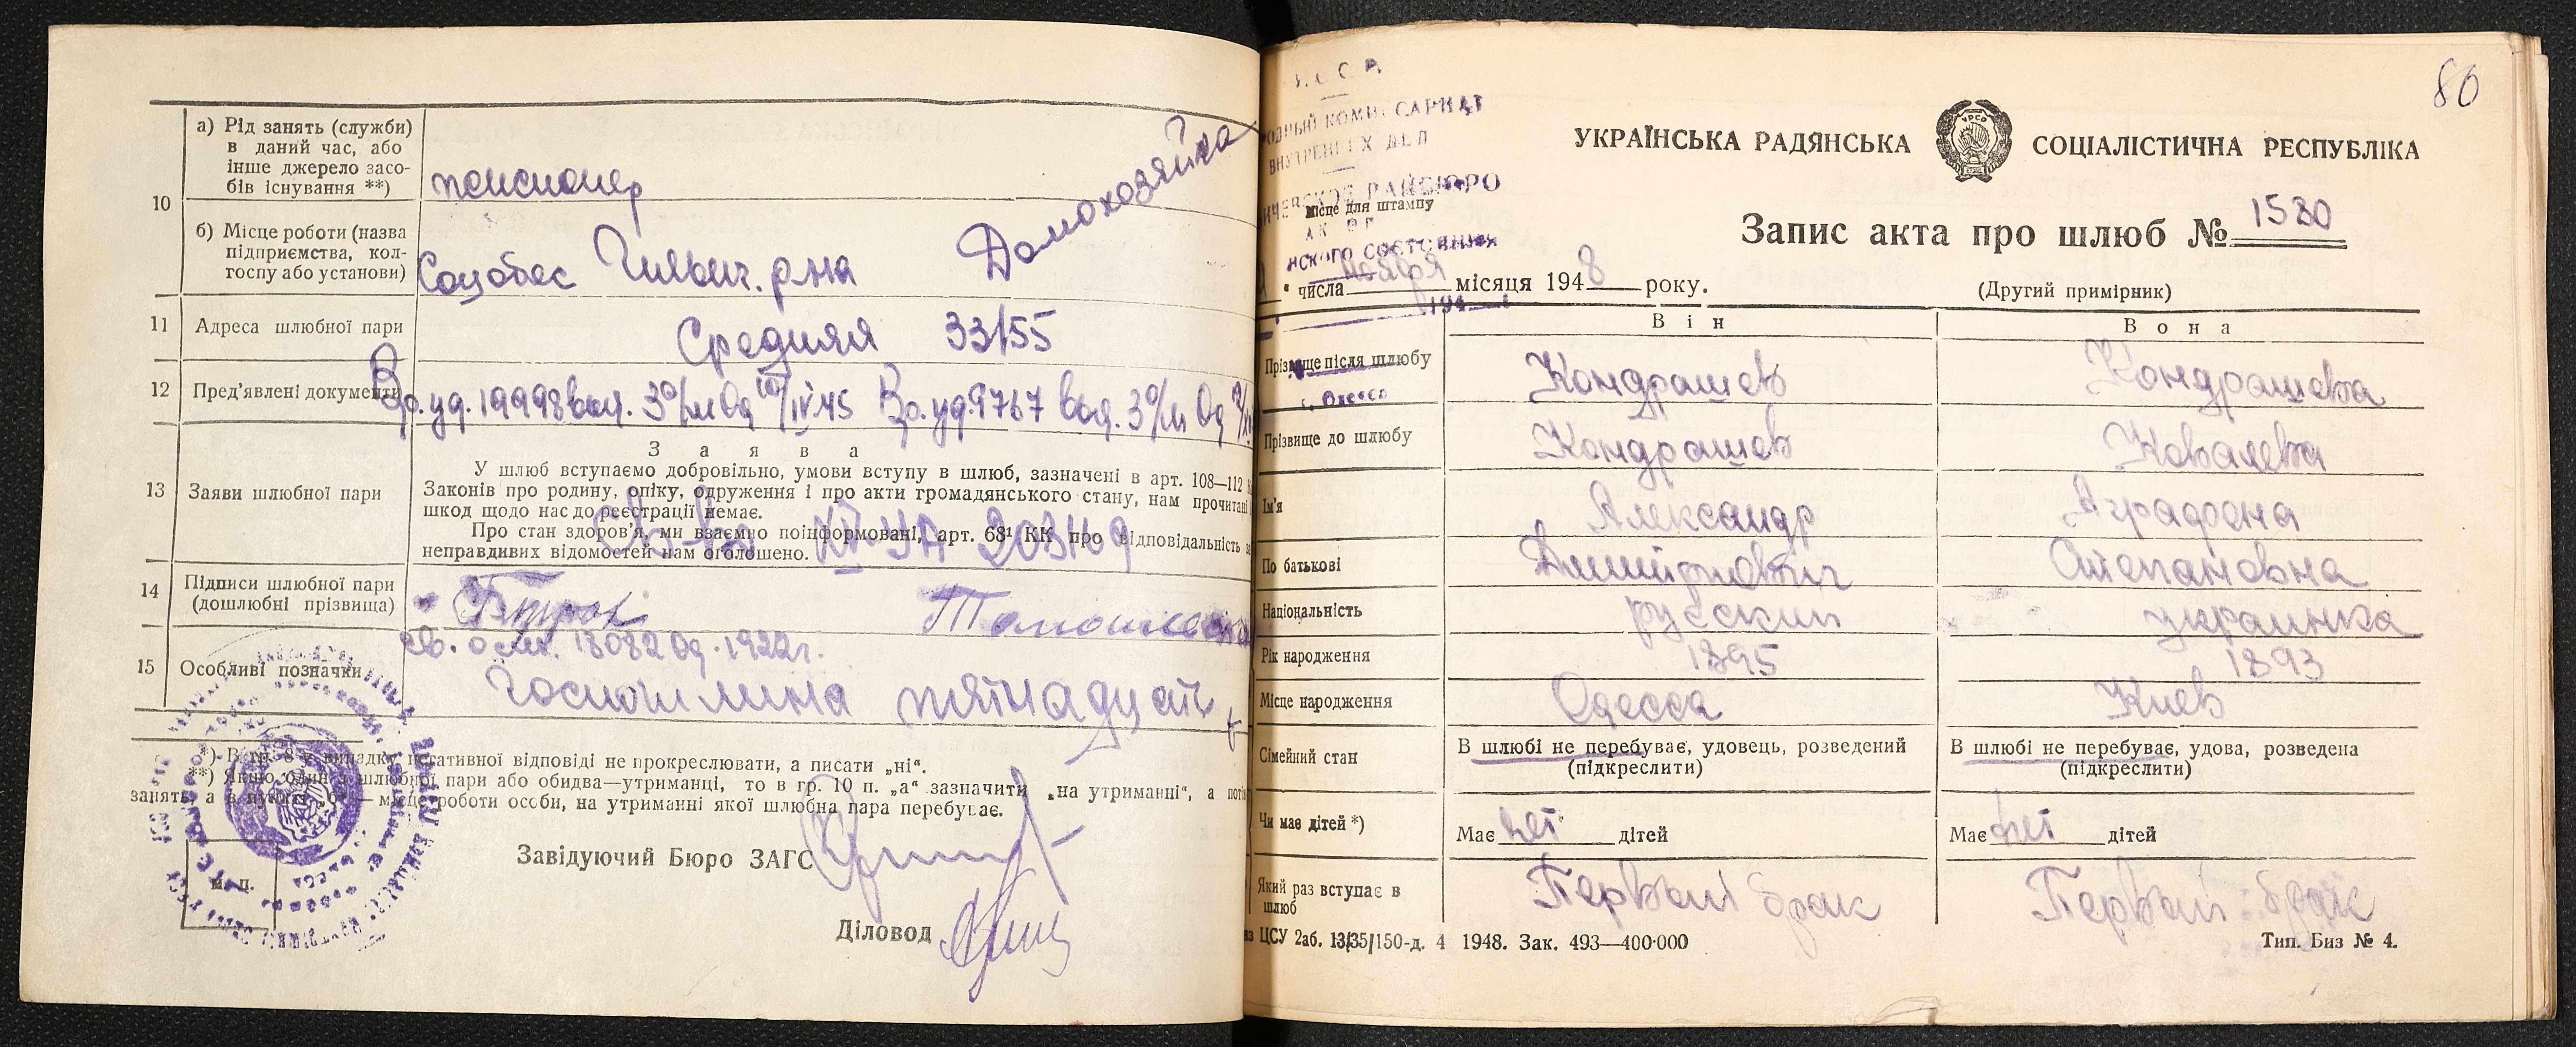 а) Рід занять (служби)
в даний час, або
інше джерело засо-
бів існування **)
пенсионер
10
б) Місце роботи (назва
підприємства, кол-
госпу або установи)
Соцобес Ильич. р-на
Домохозяйка
11 Адреса шлюбної пари
Средняя 33/55
12 Пред'явлені документи
Вр. уд. 19998 выд. 3 о/м Од 10/IV 45 Вр. уд. 9767 выд. 3 о/м Од
Заява
У шлюб вступаємо добровільно, умови вступу в шлюб, зазначені в арт. 108—112
13 Заяви шлюбної пари
Законів про родину, опіку, одруження і про акти громадянського стану, нам прочитані
шкод щодо нас до реєстрації немає.
Про стан здоров'я, ми взаємно поінформовані, арт. 68¹ КК про відповідальність
неправдивих відомостей нам оголошено.
14 Підписи шлюбної пари
(дошлюбні прізвища)
св. о 18082 Од. 1922 г.
15 Особливі позначки
Госпошлина пятнадцать
*) В гр. 8 у випадку негативної відповіді не прокреслювати, а писати „ні“.
**) Якщо один з шлюбної пари або обидва—утриманці, то в гр. 10 п. „а“ зазначити „на утриманні“, а
занять, а в пункті „б“ — місце роботи особи, на утриманні якої шлюбна пара перебуває.
Завідуючий Бюро ЗАГС
м. п.
Діловод
80
УКРАЇНСЬКА РАДЯНСЬКА СОЦІАЛІСТИЧНА РЕСПУБЛІКА
УРСР
місце для штампу
Запис акта про шлюб № 1530
числа ноября місяця 1948 року.
(Другий примірник)
Він Вона
Прізвище після шлюбу Кондрашев Кондрашева
г. Одесса
Прізвище до шлюбу Кондрашев Ковалева
Ім'я Александр Аграфена
По батькові Дмитриевич Степановна
Національність русский украинка
Рік народження 1895 1893
Місце народження Одесса Киев
Сімейний стан
В шлюбі не перебуває, удовець, розведений
(підкреслити)
В шлюбі не перебуває, удова, розведена
(підкреслити)
Чи має дітей *) Має нет дітей Має нет дітей
Який раз вступає в
шлюб
Первый брак Первый брак
ЦСУ 2аб. 13/35/150-д. 4 1948. Зак. 493—400·000
Тип. Биз № 4.